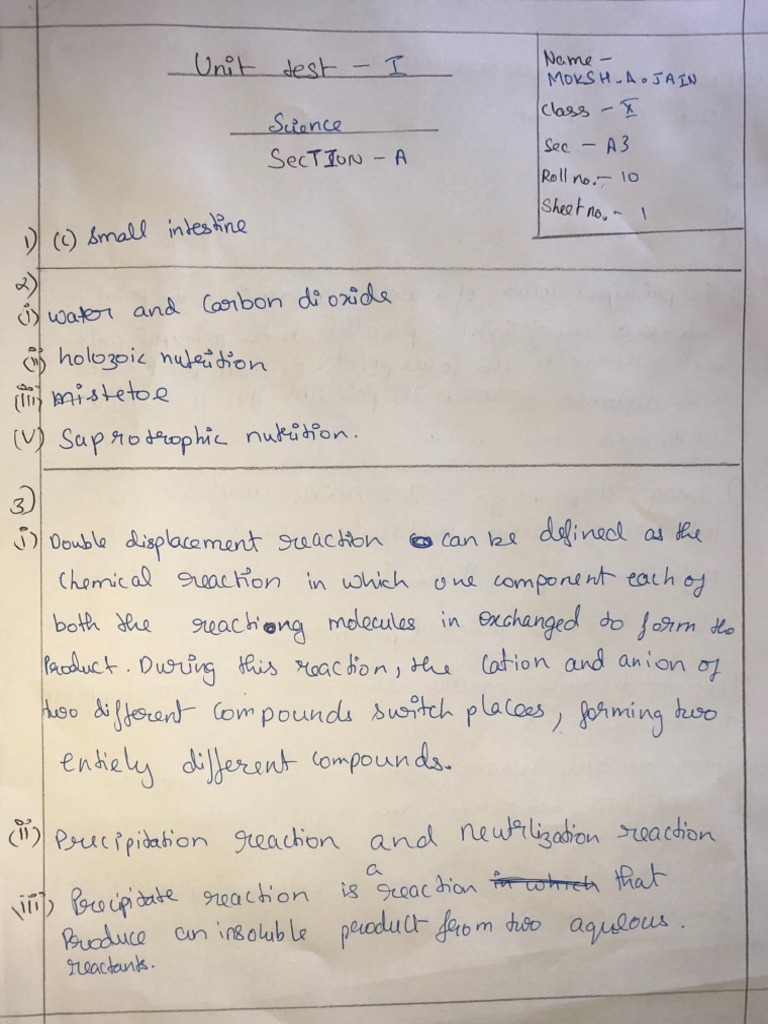 Unit test - I
Science
SECTION - A
Name -
MOKSH-A.JAIN
Class - X
Sec - A3
Roll no.- 10
Sheet no.- 1
1) (C) Small intestine
2)
(i) water and Carbon dioxide
(ii) holozoic nutrition
(iii) mistetoe
(V) Saprotrophic nutrition.
3)
i) Double displacement reaction can be defined as the
Chemical reaction in which one component each of
both the reactiong molecules in exchanged to form the
Product. During this reaction, the cation and anion of
two different compounds switch placees, forming two
entiely different compounds.
(ii) Precipidation reaction and neutrlization reaction
iii) Precipitate reaction is a reaction in which that
Produce an insoluble product from two aqueous.
reactants.